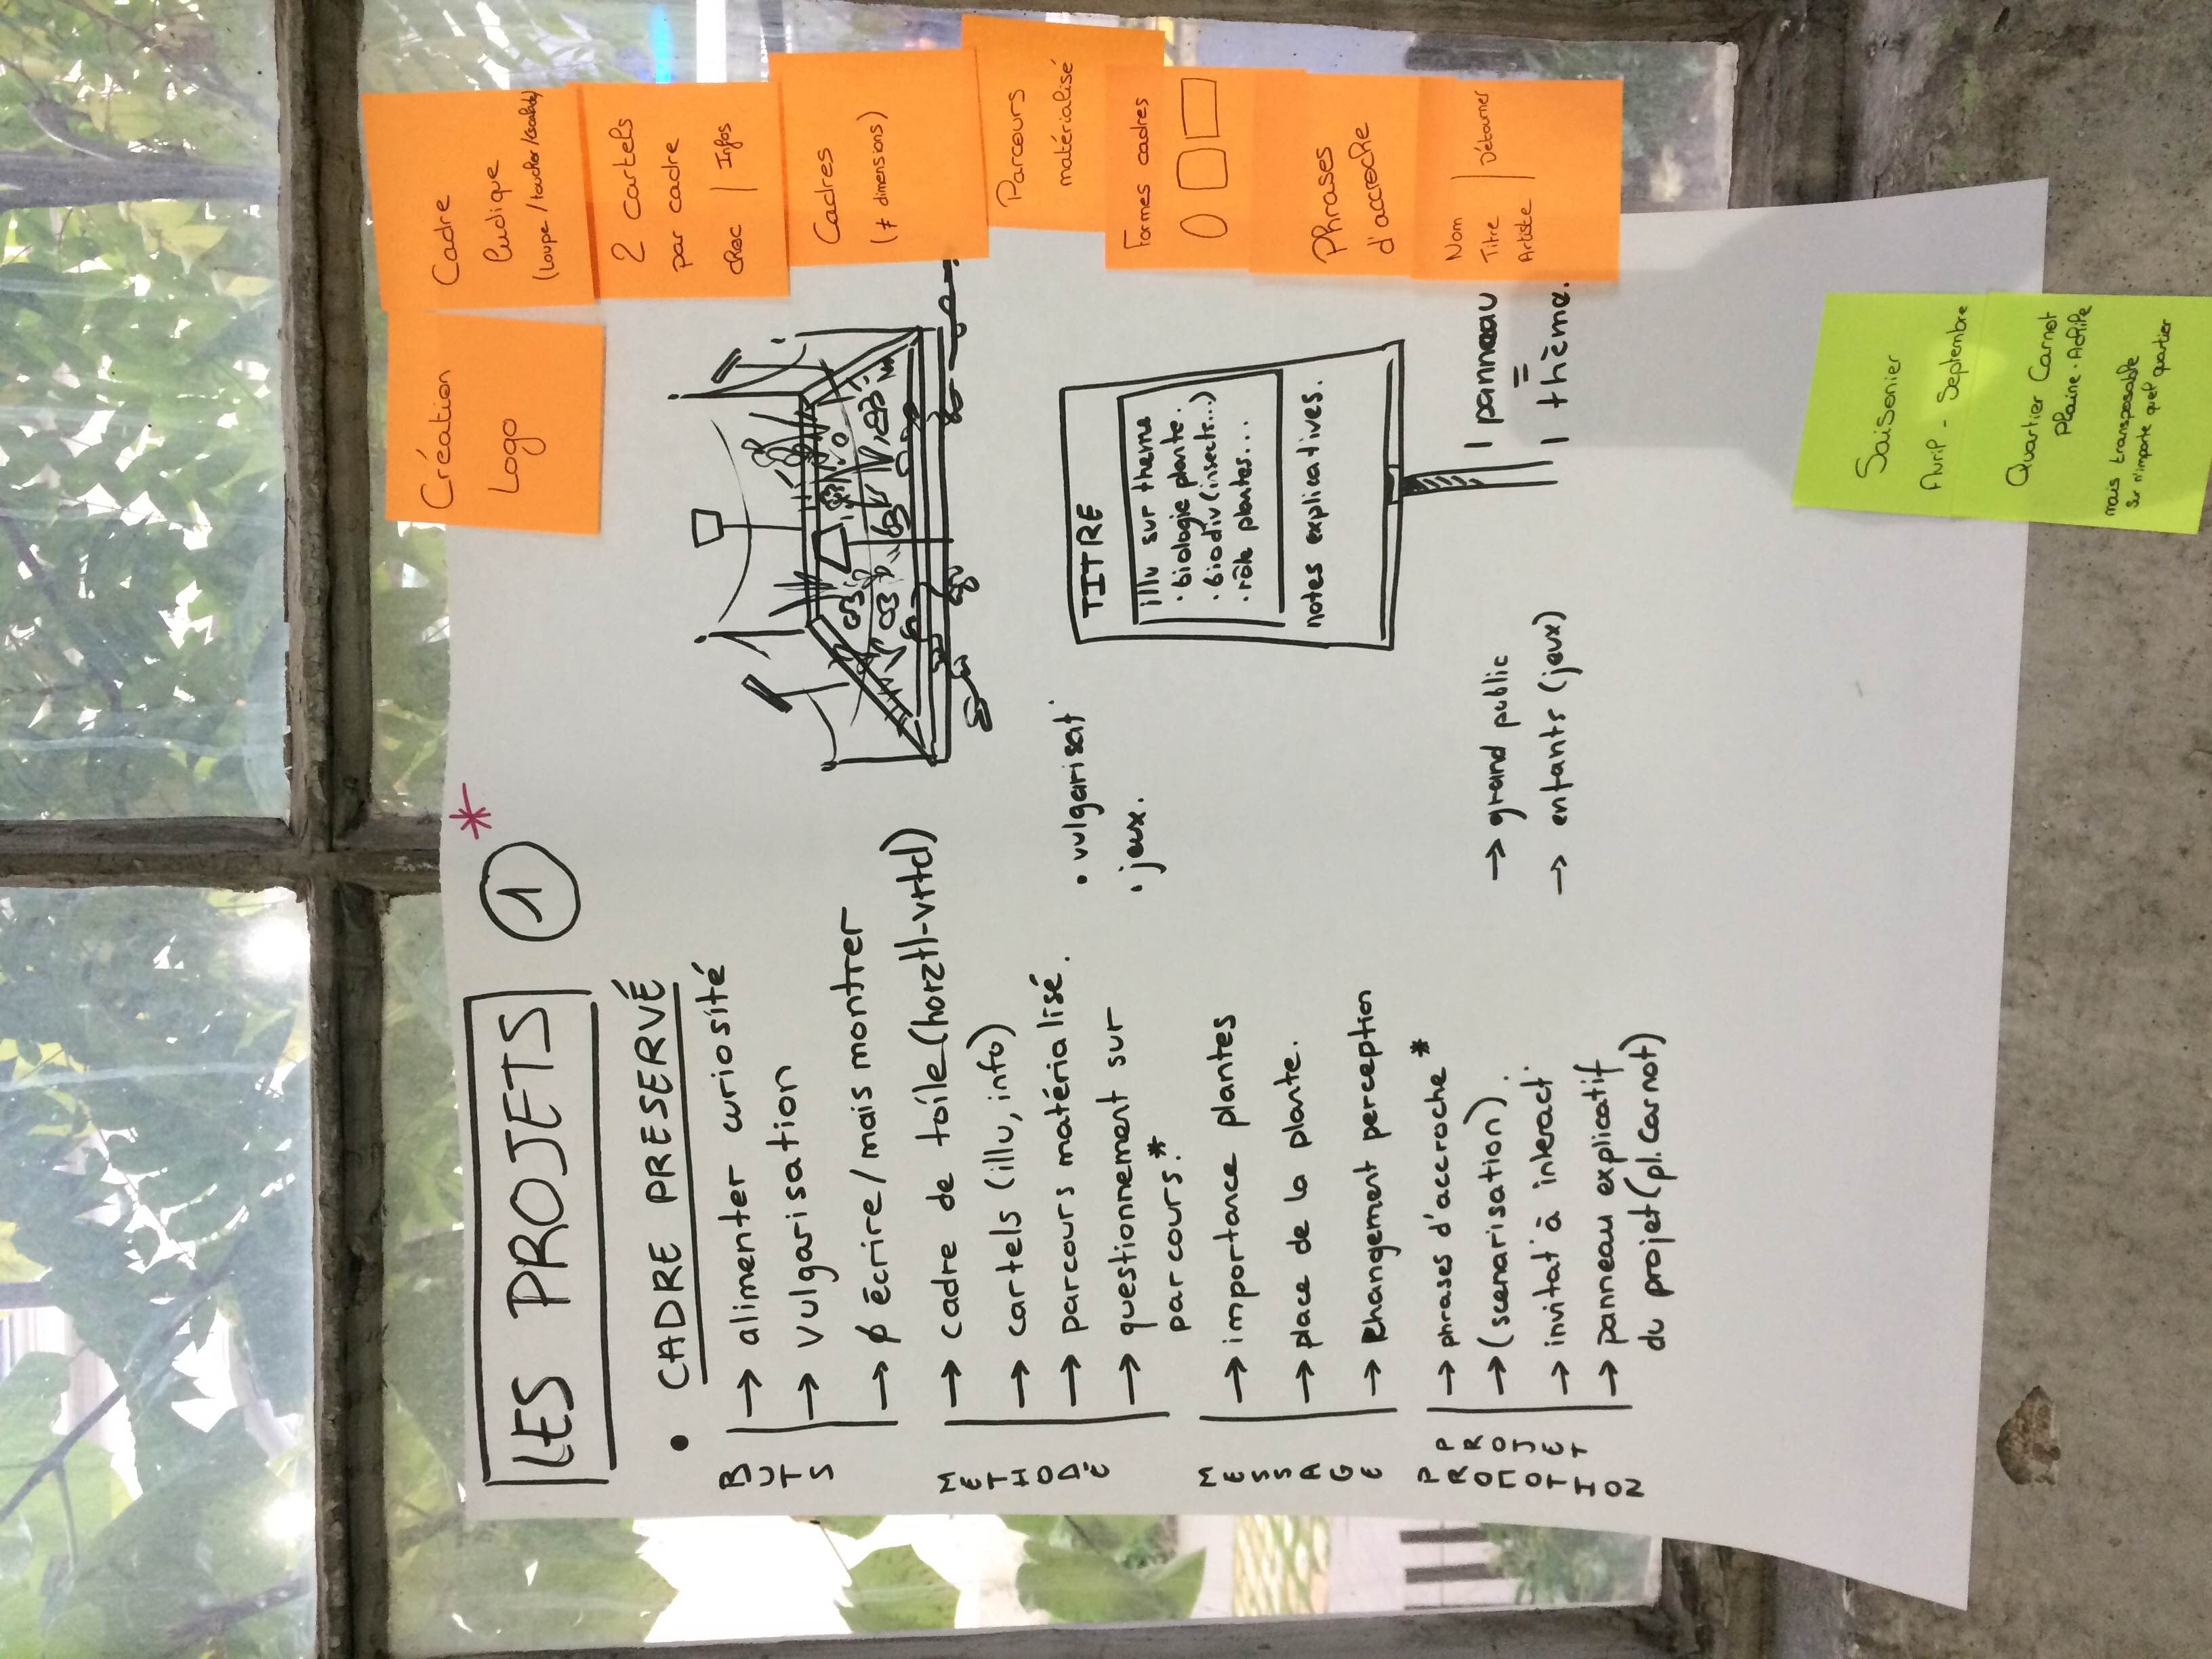 LES PROJETS 1 *
• CADRE PRESERVÉ
BUTS
→ alimenter curiosité
→ vulgarisation
→ ø écrire/mais montrer
METHODE
→ cadre de toile (horztl-vrtcl)
→ cartels (illu, info)
→ parcours matérialisé.
→ questionnement sur
parcours.*
• vulgarisat°
• jeux.
MESSAGE
→ importance plantes
→ place de la plante.
→ changement perception
PROMOTION
PROJET
→ phrases d'accroche*
→ (scenarisation).
→ invitat° à interact°
→ panneau explicatif
du projet (pl. Carnot)
→ grand public
→ enfants (jeux)
TITRE
illu sur thème
• biologie plante.
• biodiv (insecte...)
• rôle plantes...
notes explicatives.
1 panneau
=
1 thème.
Création
Logo
Cadre
ludique
(loupe/toucher/
2 cartels
par cadre
choc | Infos
Cadres
(≠ dimensions)
Parcours
matérialisé
Formes cadres
Phrases
d'accroche
Nom
Titre | Détourner
Artiste
Saisonier
Avril - Septembre
Quartier Carnot
Plaine-Achille
mais transposable
sur n'importe quel quartier